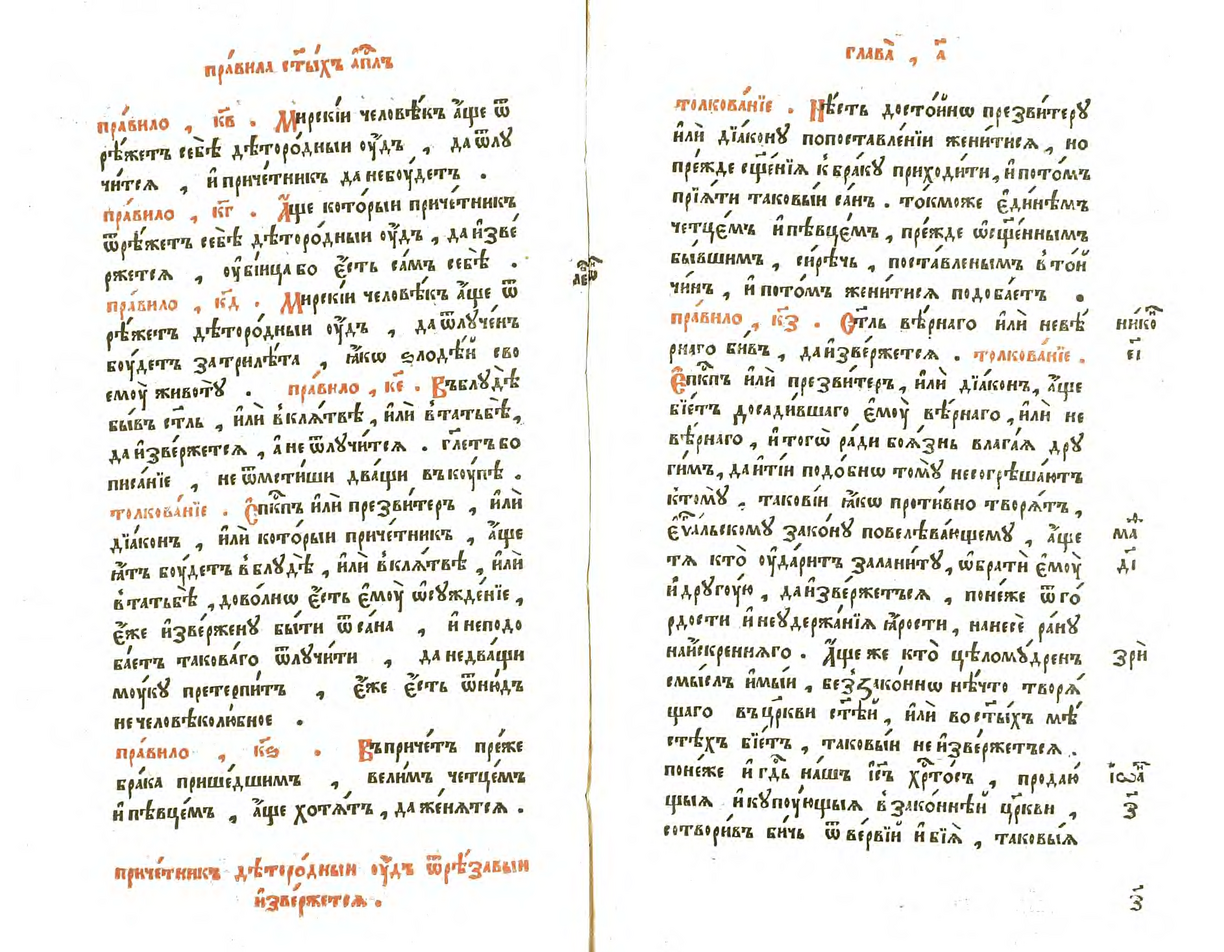 пра́вила ст҃ы́хъ а҆пⷭ҇лъ
пра́вило , к҃в . Мирскі́и человѣ́къ а҆́ще ѿ
рѣ́жетъ себѣ̀ дѣторо́дныи ᲂу҆́дъ , да ѿлꙋ
чи́тсѧ , и҆ приче́тникъ да небꙋ́детъ .
пра́вило , к҃г . А҆́ще кото́рыи приче́тникъ
ѿрѣ́жетъ себѣ̀ дѣторо́дныи ᲂу҆́дъ , да и҆зве́
ржетсѧ , ᲂу҆бі́ица бо є҆́сть са́мъ себѣ̀ .
пра́вило , к҃д . Мирскі́и человѣ́къ а҆́ще ѿ
рѣ́жетъ дѣторо́дныи ᲂу҆́дъ , да ѿлꙋче́нъ
бꙋ́детъ за трилѣ́та , ꙗ҆́кѡ ѕлодѣ́й сво
емꙋ̀ животꙋ̀ . пра́вило , к҃е . Въблꙋ́дѣ
бы́въ ст҃ль , и҆лѝ в клѧ́твѣ , и҆лѝ в татьбѣ̀,
да и҆зве́ржетсѧ , а҆ не ѿлꙋчи́тсѧ . гл҃етъ бо
писа́нїе , не ѿмсти́ши два́щи въкꙋ́пѣ .
толкова́нїе . Є҆пⷭ҇кпъ и҆лѝ презви́теръ , и҆лѝ
дїа́конъ , и҆лѝ кото́рыи приче́тникъ , а҆́ще
ꙗ҆́тъ бꙋ́детъ в блꙋ́дѣ , и҆лѝ в клѧ́твѣ , и҆лѝ
в татьбѣ̀ , дово́лнѡ є҆́сть є҆мꙋ̀ ѡ҆сꙋжде́нїе ,
є҆́же и҆зве́рженꙋ бы́ти ѿ са́на , и҆ неподо
ба́етъ такова́го ѿлꙋчи́ти , да недва́щи
мꙋ́кꙋ претерпи́тъ , є҆́же є҆́сть ѿню́дъ
нечеловѣколю́бное .
пра́вило , к҃ѕ . Въприче́тъ пре́же
бра́ка прише́дшимъ , вели́мъ четце́мъ
и҆ пѣвце́мъ , а҆́ще хотѧ́тъ , да же́нѧтсѧ .
приче́тникъ дѣторо́дныи ᲂу҆́дъ ѿрѣ́завыи
и҆зве́ржетсѧ .
глава̀ , а҃
толкова́нїе . Нѣ́сть досто́йнѡ презви́терꙋ
и҆лѝ дїа́конꙋ попоставле́нїи жени́тисѧ , но
пре́жде сщ҃е́нїѧ к бра́кꙋ приходи́ти, и҆ пото́мъ
прїѧ́ти таковы́й са́нъ . токможе є҆ди́нѣмъ
четце́мъ и҆ пѣвце́мъ , пре́жде ѡ҆сщ҃е́ннымъ
бы́вшимъ , си́рѣчь , поста́вленымъ в то́й
чи́нъ , и҆ пото́мъ жени́тисѧ подоба́етъ .
пра́вило , к҃з . Ст҃ль вѣ́рнаго и҆лѝ невѣ́
рнаго би́въ , да и҆зве́ржетсѧ . толкова́нїе .
Є҆пⷭ҇кпъ и҆лѝ презви́теръ , и҆лѝ дїа́конъ , а҆́ще
бїе́тъ досади́вшаго є҆мꙋ̀ вѣ́рнаго , и҆лѝ не
вѣ́рнаго , и҆ тогѡ̀ ра́ди боѧ́знь влага́ѧ дрꙋ
ги́мъ, да и҆ ті́и подо́бнѡ томꙋ̀ несогрѣша́ютъ
ктомꙋ̀ . такові́и ꙗ҆́кѡ проти́вно творѧ́тъ ,
є҆ѵⷢ҇а́льскомꙋ зако́нꙋ повелѣва́ющемꙋ , а҆́ще
тѧ кто̀ ᲂу҆да́ритъ зала́нитꙋ , ѡ҆братѝ є҆мꙋ̀
и҆ дрꙋгꙋ́ю , да и҆зве́ржетъсѧ , поне́же ѿ го́
рдости и҆ неꙋдержа́нїѧ ꙗ҆́рости , нанесѐ ра́нꙋ
на и҆́скреннѧго . А҆́ще же кто̀ цѣломꙋ́дренъ
смы́слъ и҆мы́и , беззако́ннѡ нѣ́что творѧ́
щаго въ цр҃кви ст҃ѣ́й , и҆лѝ во ст҃ы́хъ мѣ́
стѣхъ бїе́тъ , таковы́и не и҆зве́ржетъсѧ .
поне́же и҆ гдⷭ҇ь на́шъ і҆с҃ъ хрⷭ҇то́съ , продаю́
щыѧ и҆ кꙋпꙋ́ющыѧ в зако́ннѣй цр҃кви ,
сотвори́въ би́чь ѿ ве́рвїй и҆ бїѧ̀ , таковы́ѧ
нико
є҃і
ма
д҃і
зрѝ
і҆ѡа
з҃
з҃